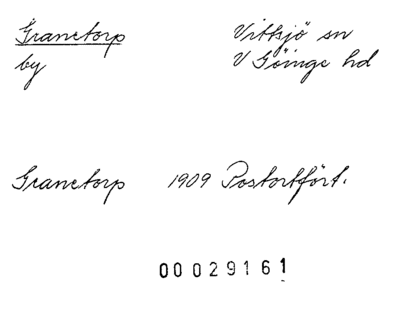 Granetorp Vittsjö sn
by V Göinge hd
Granetorp 1909 Postortfört.
00029161